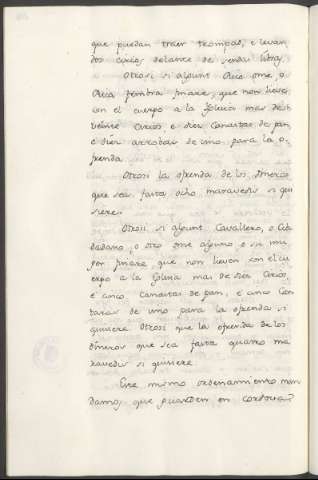 que puedan traer trompas, e lievan
dos cirios delante de sendas libras
Otrosi si algunt Rico ome, o
Rica fembra finare, que non lieven
con el cuerpo a la Iglesia mas de
veinte cirios e diez canastas de pan
e diez arrobas de vino para la o-
frenda.
Otrosi la ofrenda de los dineros
que sea fasta ocho maravedis si qui
siere.
Otrosi si algunt Cavallero, o Cib
dadano, o otro ome alguno o su mu
ger finare, que non lieven con el cu
erpo a la Iglesia mas de diez Cirios
e cinco Canastas de pan, e cinco Can
taras de vino para la ofrenda si
quisiere Otrosi que la ofrenda de los
dineros que sea fasta quatro ma
ravedis si quisiere.
Este mismo ordenamiento man
damos que guarden en Cordova